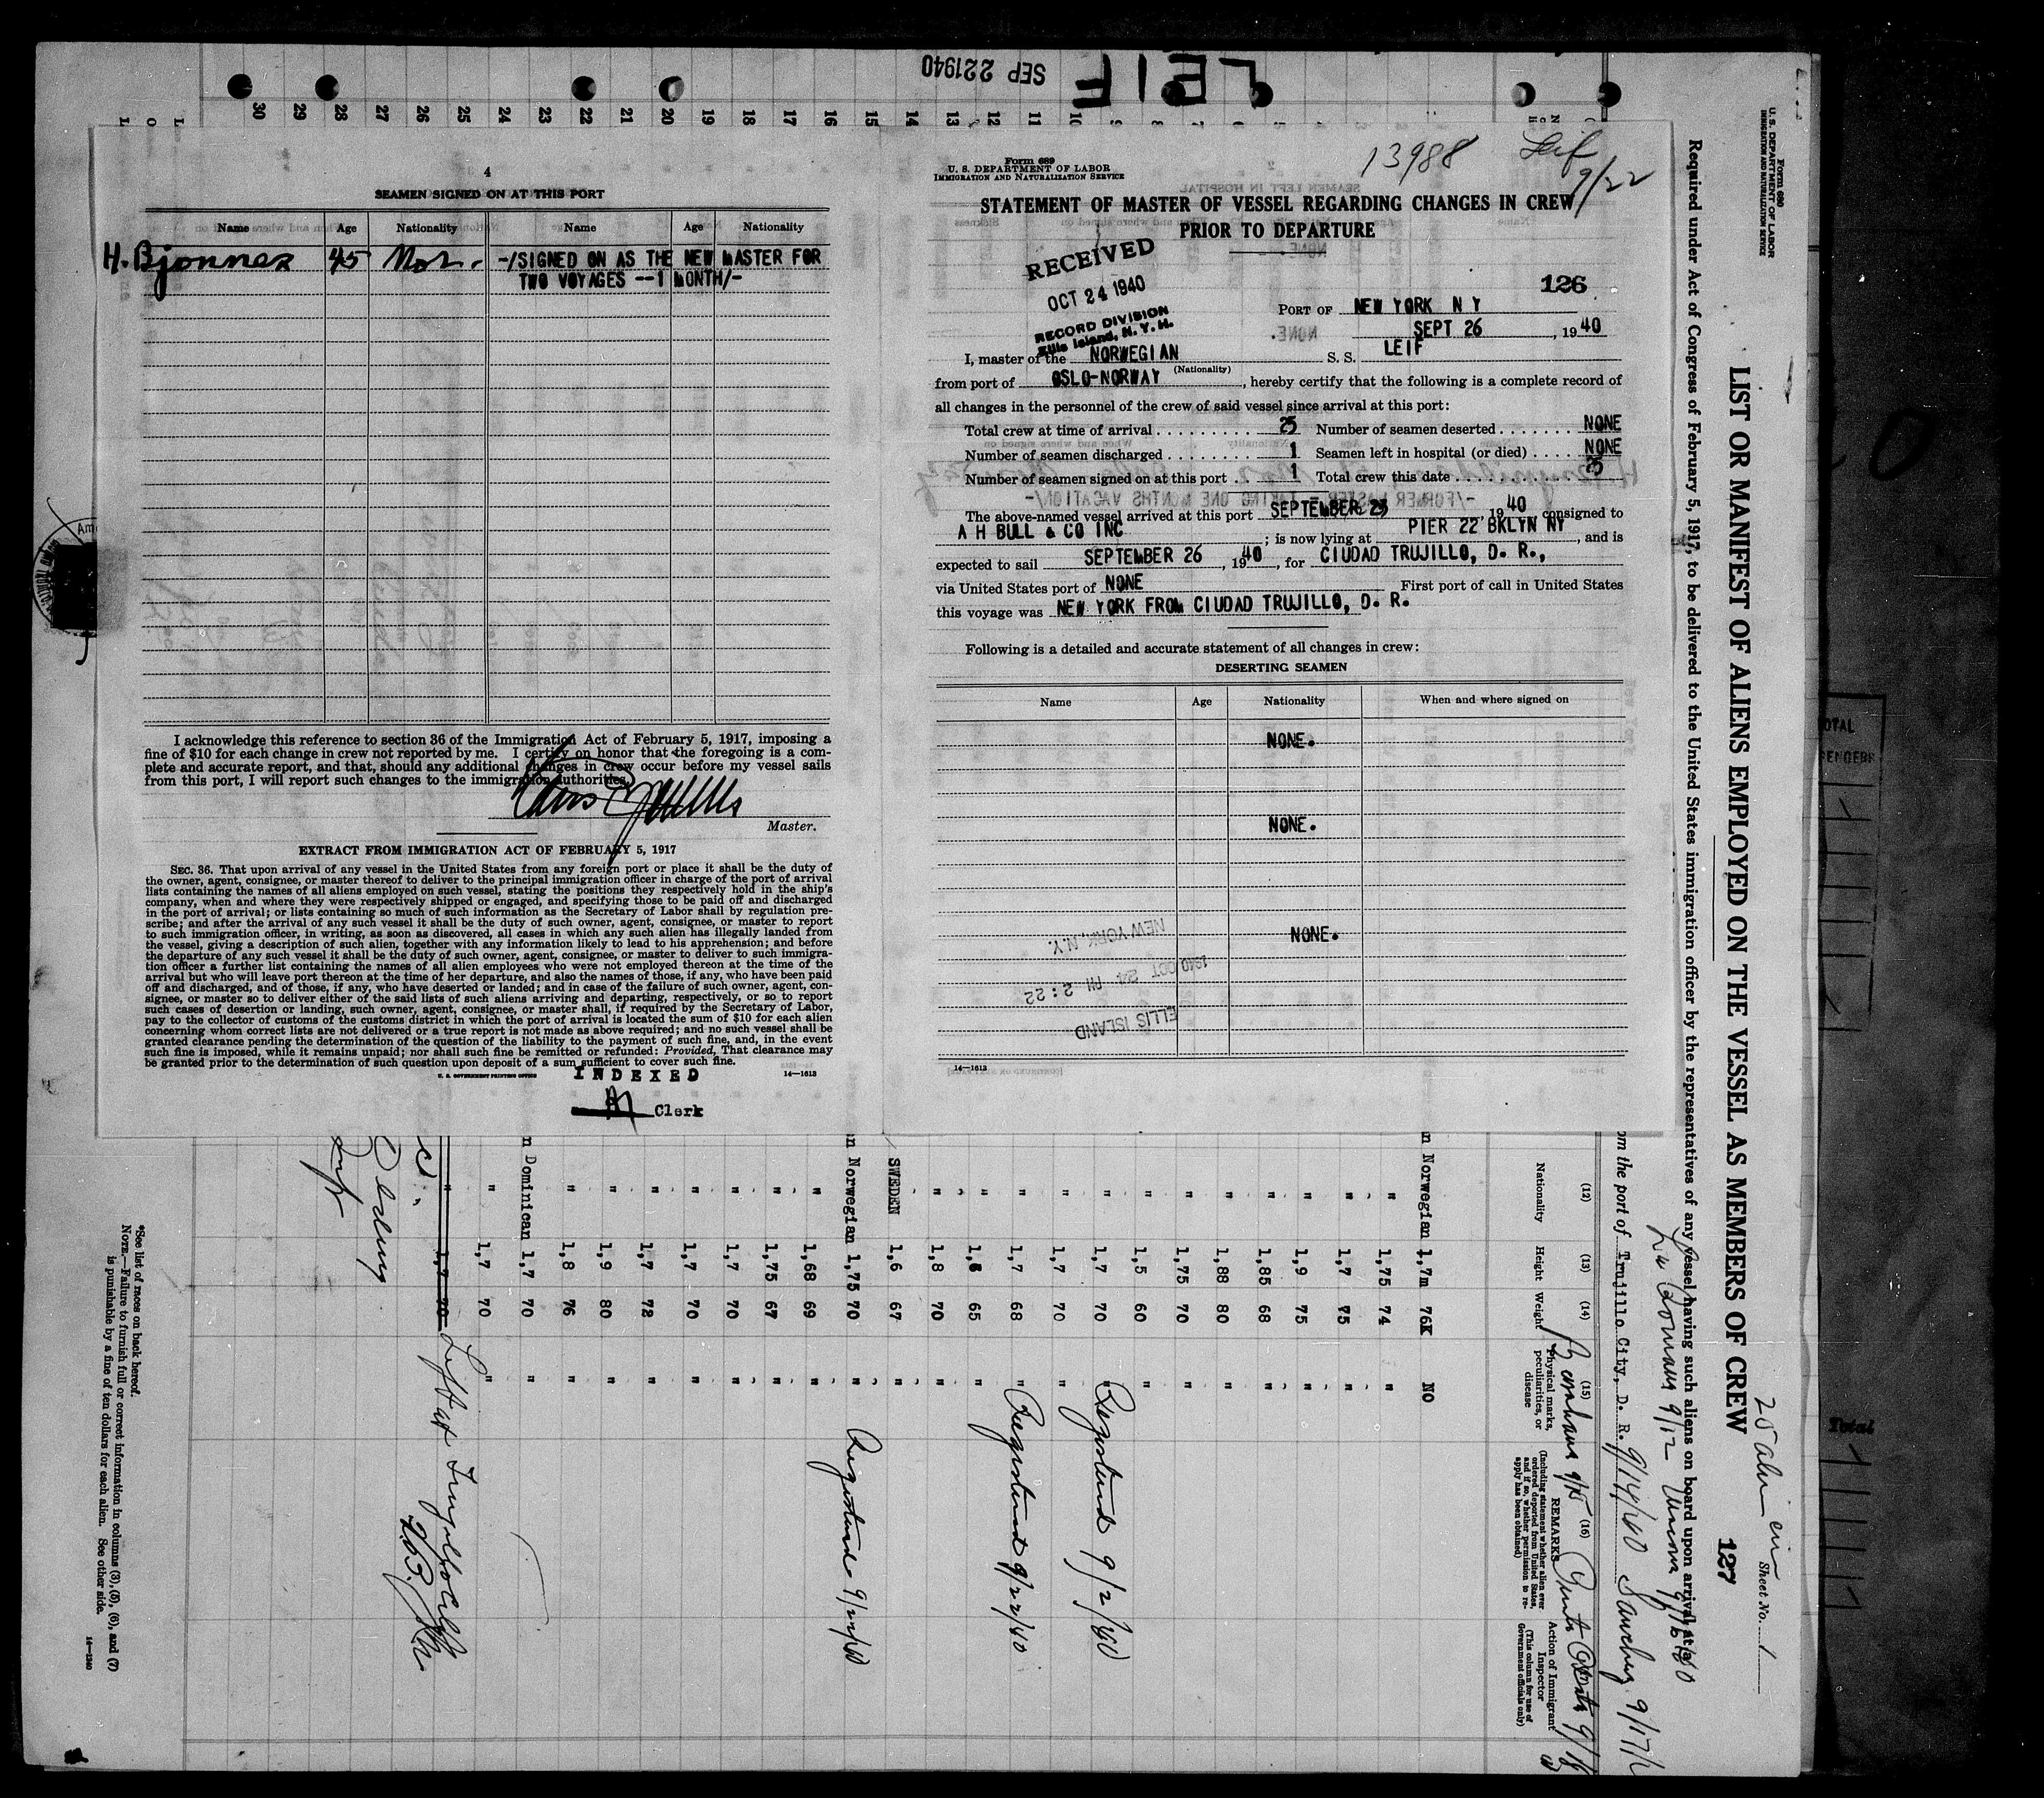 SEP 22 1940
LEIF
30 29 28 27 26 25 24 23 22 21 20 19 18 17 16 15 14 13 12 11 10 9 8 7 6 5
4
SEAMEN SIGNED ON AT THIS PORT
Name Age Nationality Name Age Nationality
H. Bjonnes 45 Nor. -/SIGNED ON AS THE NEW MASTER FOR
TWO VOYAGES --1 MONTH/-
I acknowledge this reference to section 36 of the Immigration Act of February 5, 1917, imposing a
fine of $10 for each change in crew not reported by me. I certify on honor that the foregoing is a com-
plete and accurate report, and that, should any additional changes in crew occur before my vessel sails
from this port, I will report such changes to the immigration authorities.
Master.
EXTRACT FROM IMMIGRATION ACT OF FEBRUARY 5, 1917
SEC. 36. That upon arrival of any vessel in the United States from any foreign port or place it shall be the duty of
the owner, agent, consignee, or master thereof to deliver to the principal immigration officer in charge of the port of arrival
lists containing the names of all aliens employed on such vessel, stating the positions they respectively hold in the ship's
company, when and where they were respectively shipped or engaged, and specifying those to be paid off and discharged
in the port of arrival; or lists containing so much of such information as the Secretary of Labor shall by regulation pre-
scribe; and after the arrival of any such vessel it shall be the duty of such owner, agent, consignee, or master to report
to such immigration officer, in writing, as soon as discovered, all cases in which any such alien has illegally landed from
the vessel, giving a description of such alien, together with any information likely to lead to his apprehension; and before
the departure of any such vessel it shall be the duty of such owner, agent, consignee, or master to deliver to such immigra-
tion officer a further list containing the names of all alien employees who were not employed thereon at the time of the
arrival but who will leave port thereon at the time of her departure, and also the names of those, if any, who have been paid
off and discharged, and of those, if any, who have deserted or landed; and in case of the failure of such owner, agent, con-
signee, or master so to deliver either of the said lists of such aliens arriving and departing, respectively, or so to report
such cases of desertion or landing, such owner, agent, consignee, or master shall, if required by the Secretary of Labor,
pay to the collector of customs of the customs district in which the port of arrival is located the sum of $10 for each alien
concerning whom correct lists are not delivered or a true report is not made as above required; and no such vessel shall be
granted clearance pending the determination of the question of the liability to the payment of such fine, and, in the event
such fine is imposed, while it remains unpaid; nor shall such fine be remitted or refunded: Provided, That clearance may
be granted prior to the determination of such question upon deposit of a sum sufficient to cover such fine.
U. S. GOVERNMENT PRINTING OFFICE 14—1613
INDEXED
Clerk
Form 689
U. S. DEPARTMENT OF LABOR
IMMIGRATION AND NATURALIZATION SERVICE
13988
Leif
9/22
STATEMENT OF MASTER OF VESSEL REGARDING CHANGES IN CREW
PRIOR TO DEPARTURE
RECEIVED
OCT 24 1940
RECORD DIVISION
Ellis Island, N. Y. H.
126
PORT OF NEW YORK N Y
SEPT 26, 1940
I, master of the NORWEGIAN S. S. LEIF
(Nationality)
from port of OSLO-NORWAY, hereby certify that the following is a complete record of
all changes in the personnel of the crew of said vessel since arrival at this port:
Total crew at time of arrival 25 Number of seamen deserted NONE
Number of seamen discharged 1 Seamen left in hospital (or died) NONE
Number of seamen signed on at this port 1 Total crew this date 25
The above-named vessel arrived at this port SEPTEMBER 23 1940, consigned to
A H BULL & CO INC; is now lying at PIER 22 BKLYN NY, and is
expected to sail SEPTEMBER 26, 1940, for CIUDAD TRUJILLO, D. R.,
via United States port of NONE First port of call in United States
this voyage was NEW YORK FROM CIUDAD TRUJILLO, D. R.
Following is a detailed and accurate statement of all changes in crew:
DESERTING SEAMEN
Name Age Nationality When and where signed on
NONE.
NONE.
NONE.
NEW YORK, N.Y.
1940 OCT 24 PM 2:22
ELLIS ISLAND
14—1613
Form 680
U. S. DEPARTMENT OF LABOR
IMMIGRATION AND NATURALIZATION SERVICE
Sheet No. 1
127
LIST OR MANIFEST OF ALIENS EMPLOYED ON THE VESSEL AS MEMBERS OF CREW
Required under Act of Congress of February 5, 1917, to be delivered to the United States immigration officer by the representatives of any vessel having such aliens on board upon arrival at
from the port of Trujillo City, D. R. 9/14/40 Sanchez 9/17/
La Romana 9/12
Barahona 9/15
(12) (13) (14) (15) (16)
Nationality Height Weight Physical marks, peculiarities, or disease
REMARKS
(Including statement whether alien ever ordered deported from United States, and if so, whether permission to re-apply has been obtained)
Action of Immigrant Inspector
(This column for use of Government officials only)
Norwegian 1,7m 76K NO
" 1,75 74 "
" 1,7 75 "
" 1,9 75 "
" 1,85 68 "
" 1,88 80 "
" 1,75 70 "
" 1,5 60 "
" 1,7 70 " Registered 9/2/40
" 1,7 70 "
" 1,7 68 " Registered 9/22/40
" 1,6 65 "
" 1,8 70 "
SWEDEN 1,6 67 "
Norwegian 1,75 70 " Registered 9/22/40
" 1,68 69 "
" 1,75 67 "
" 1,7 70 "
" 1,7 70 "
" 1,7 72 "
" 1,9 80 "
" 1,8 76 "
Dominican 1,7 70 "
" 1,7 70 "
" 1,7 70 Left at Trujillo City
*See list of races on back hereof.
NOTE.—Failure to furnish full or correct information in columns (3), (5), (6), and (7)
is punishable by a fine of ten dollars for each alien. See other side.
14—1240
Total